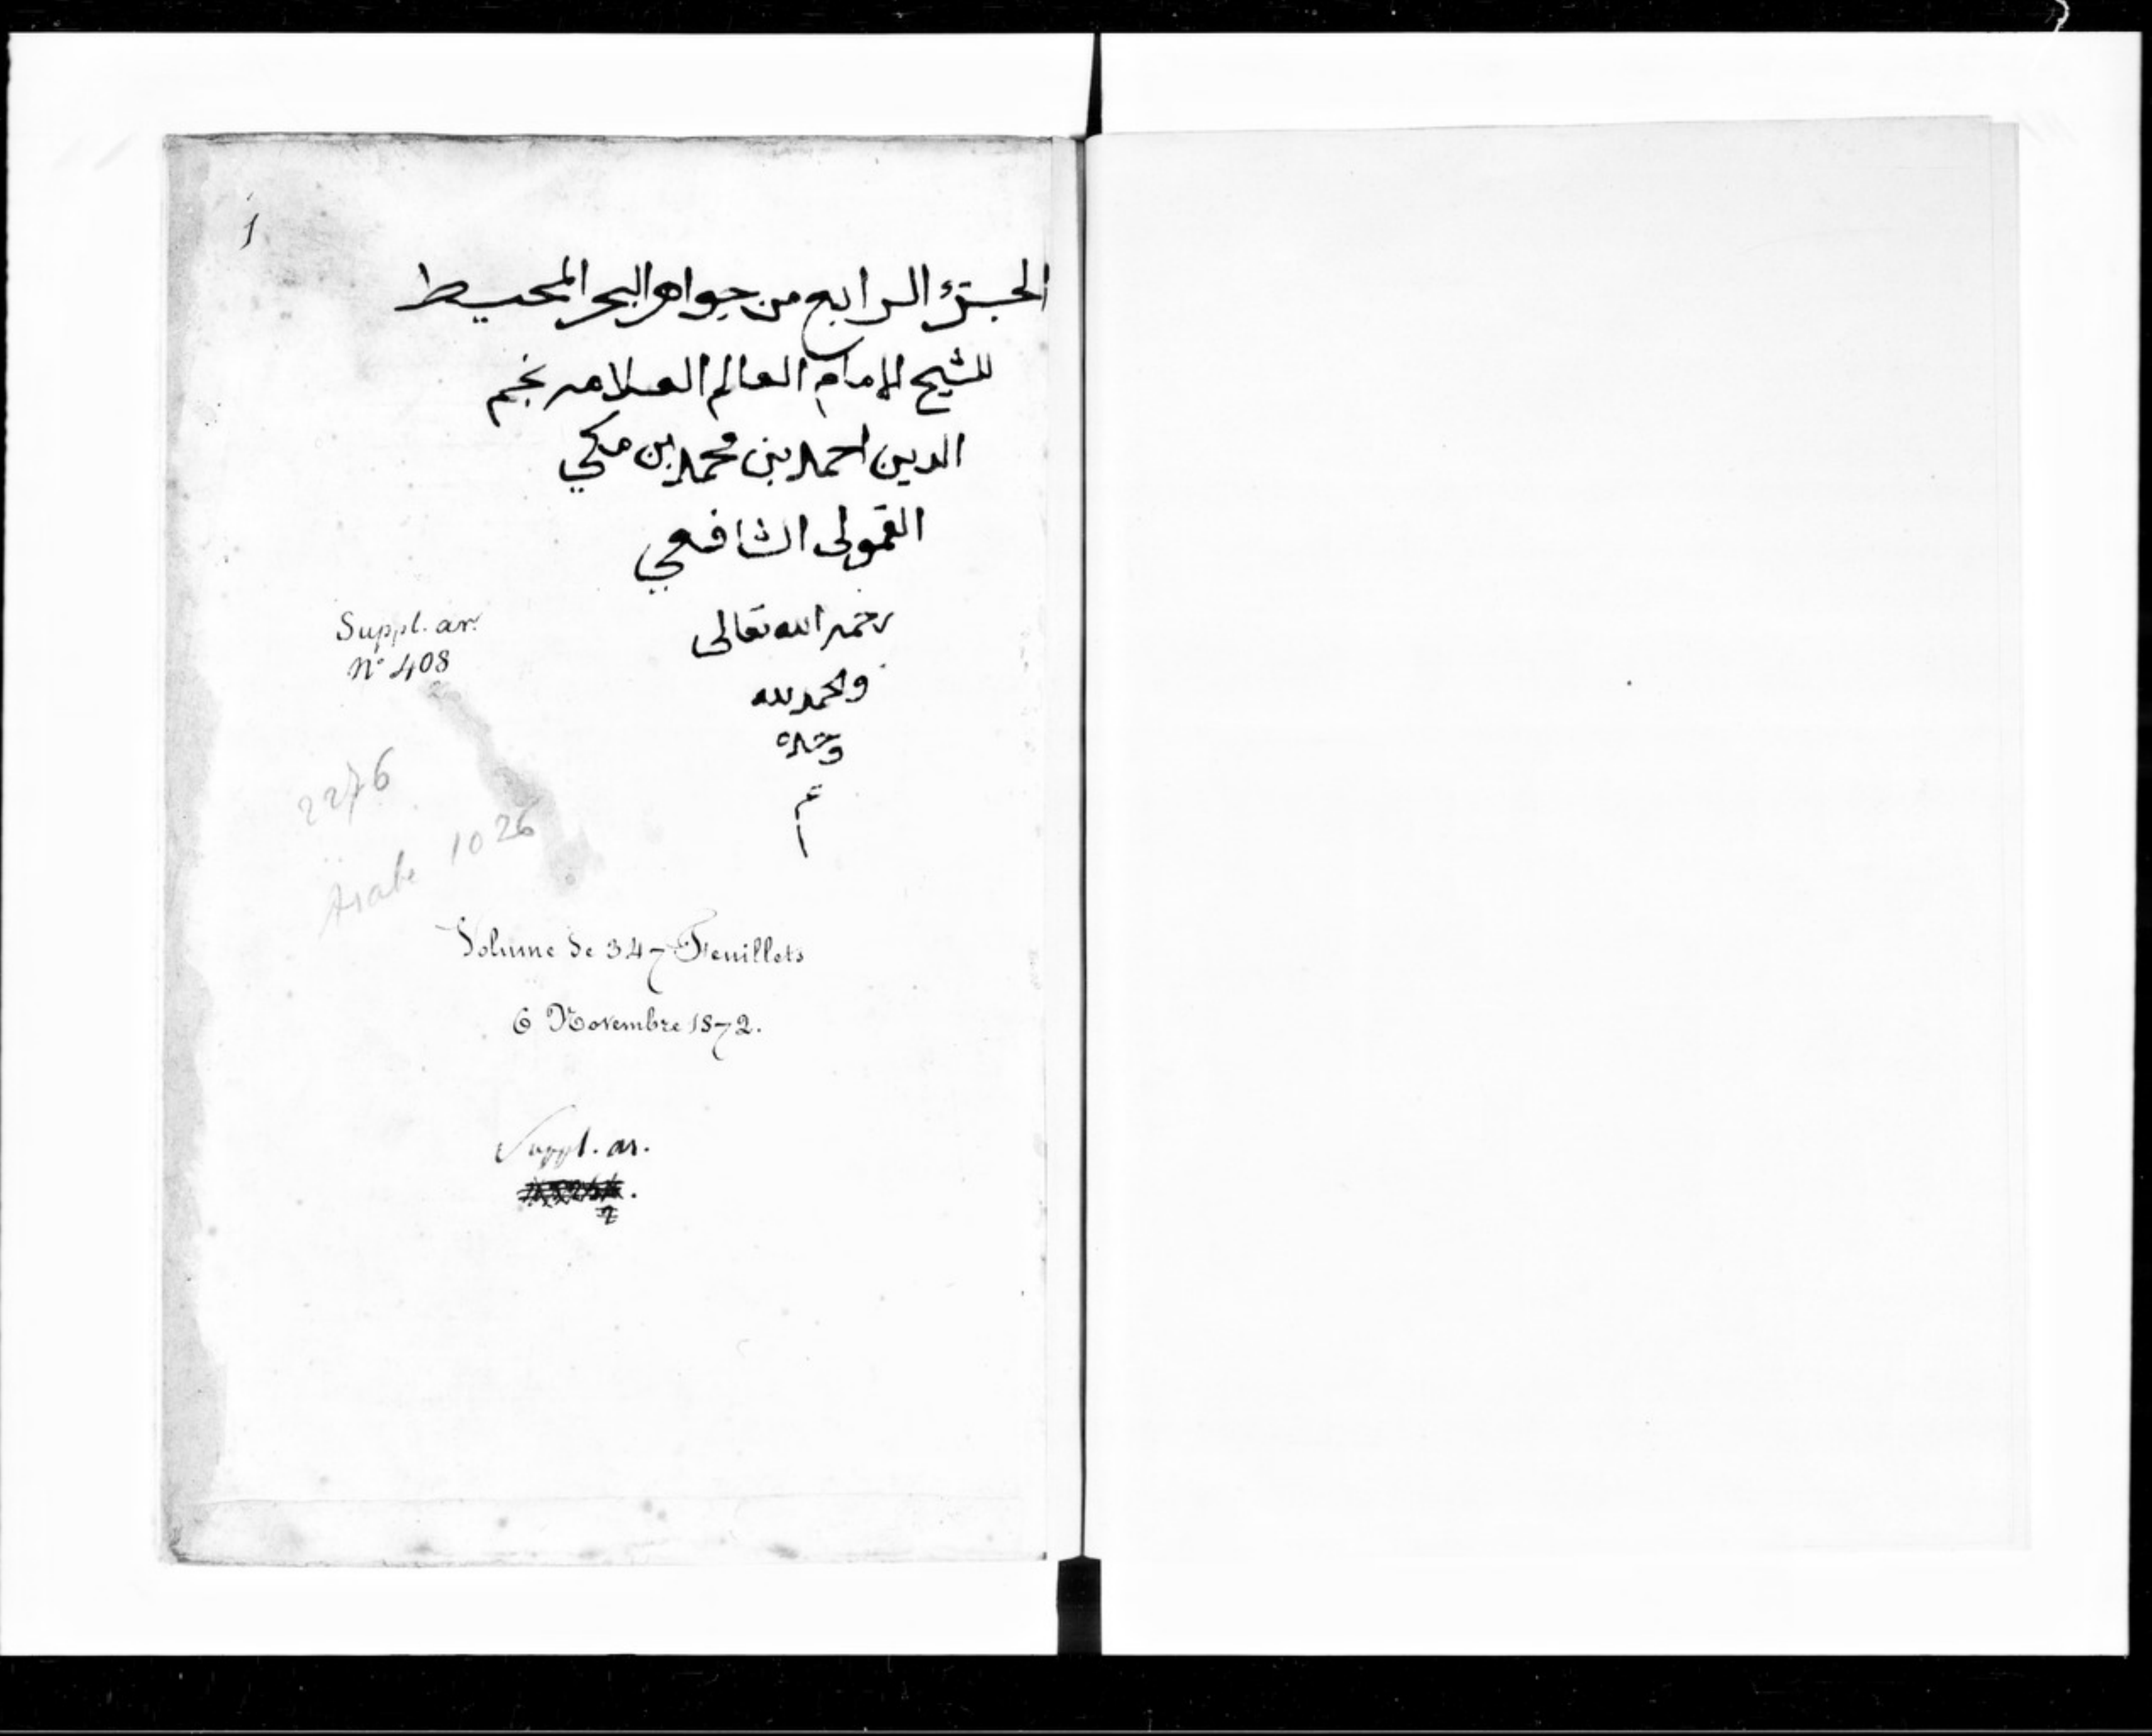 1
الجزؤ الرابع من جواهر البحر المحيط
للشيخ الامام العالم العلامه نجم
الدين احمد بن محمد بن مكي
القمولى الشافعي
رحمه الله تعالى
والحمد لله
وحده
م
Suppl. ar.
N° 408
2276
Arabe 1026
Volume de 347 Feuillets
6 Novembre 1872.
Suppl. ar.